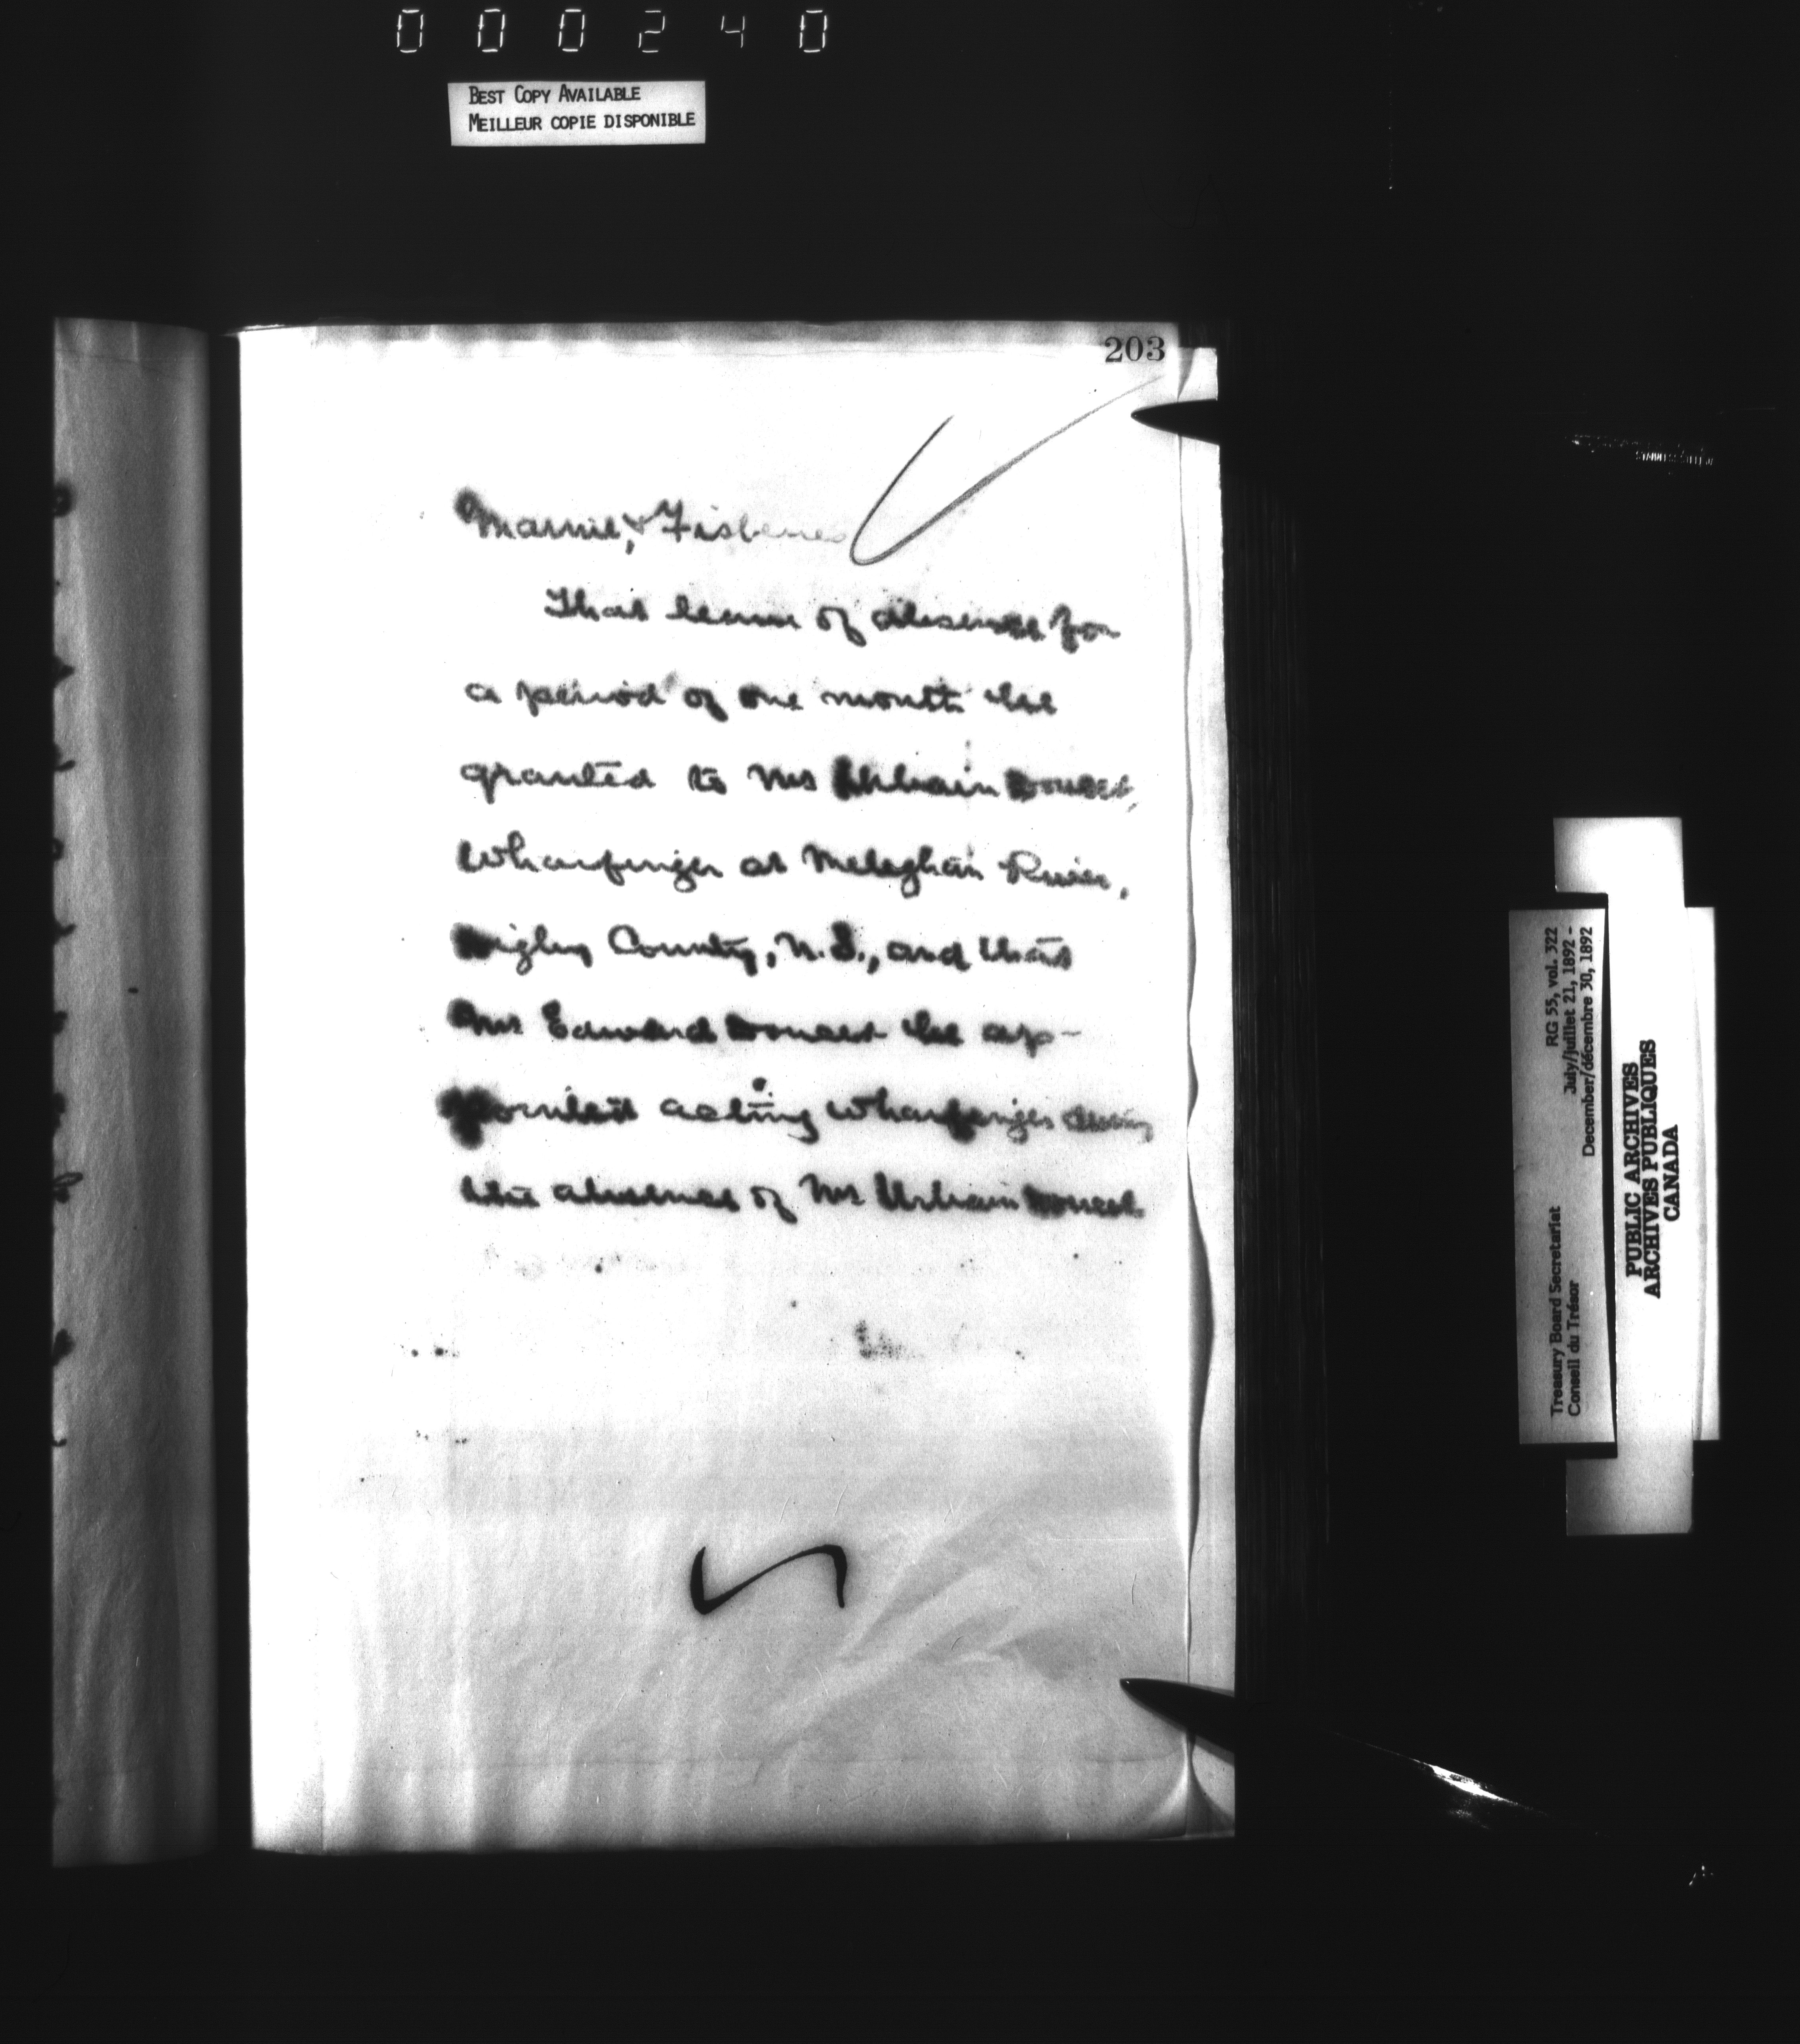 000240
BEST COPY AVAILABLE
MEILLEUR COPIE DISPONIBLE
203
Marine & Fisheries
That leave of absence for
a period of one month be
granted to Mr Urbain Doucet,
Wharfinger at Meteghan River,
Digby County, N.S., and that
Mr Edward Doucet be ap-
pointed acting Wharfinger during
the absence of Mr Urbain Doucet
Treasury Board Secretariat RG 55, vol. 322
Conseil du Trésor July/juillet 21, 1892 -
December/décembre 30, 1892
PUBLIC ARCHIVES
ARCHIVES PUBLIQUES
CANADA